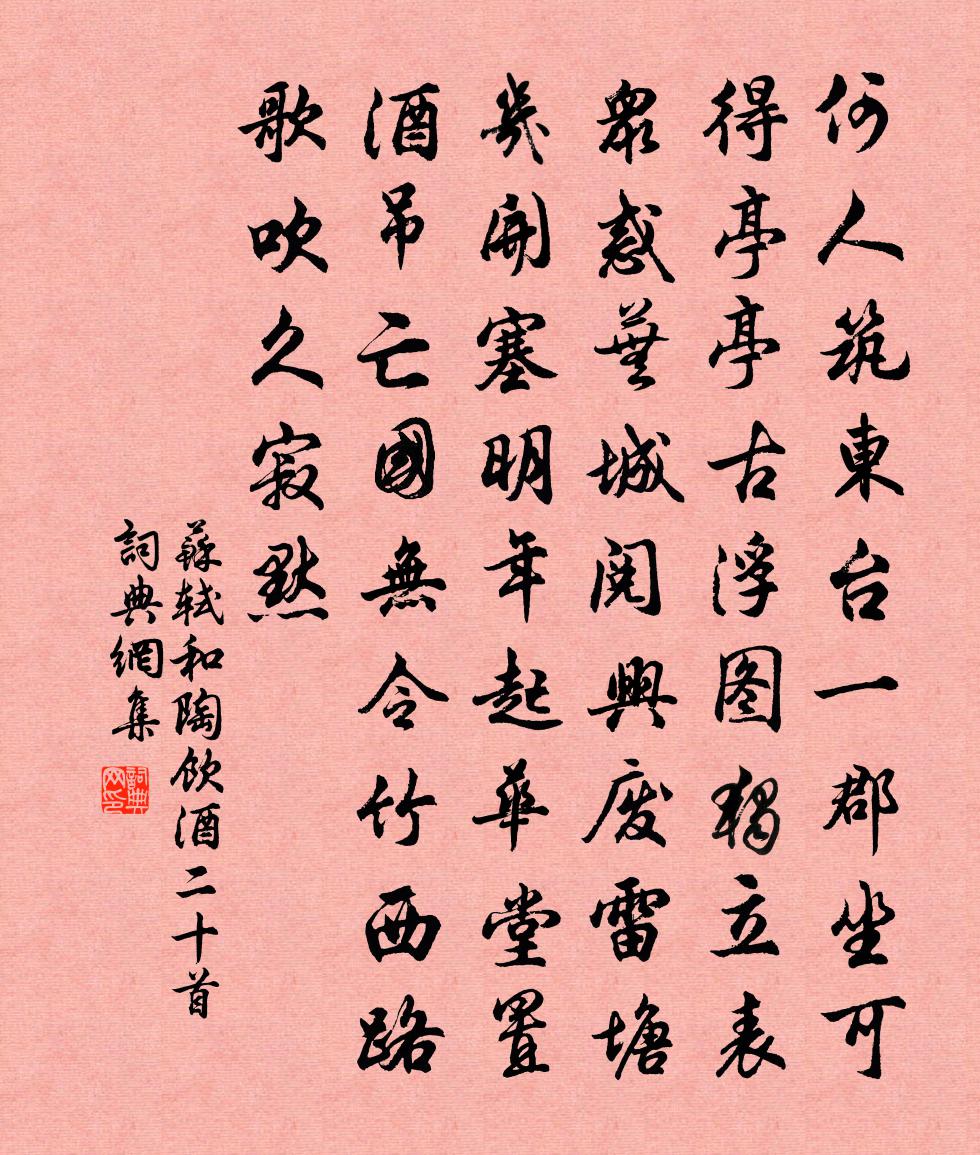 何人筑東台一郡坐可
得亭亭古浮图獨立表
眾惑蕪城閱興廢雷塘
幾開塞明年起華堂置
酒吊亡國無令竹西路
歌吹久寂默
蘇軾和陶飲酒二十首
詞典網集
詞典网印